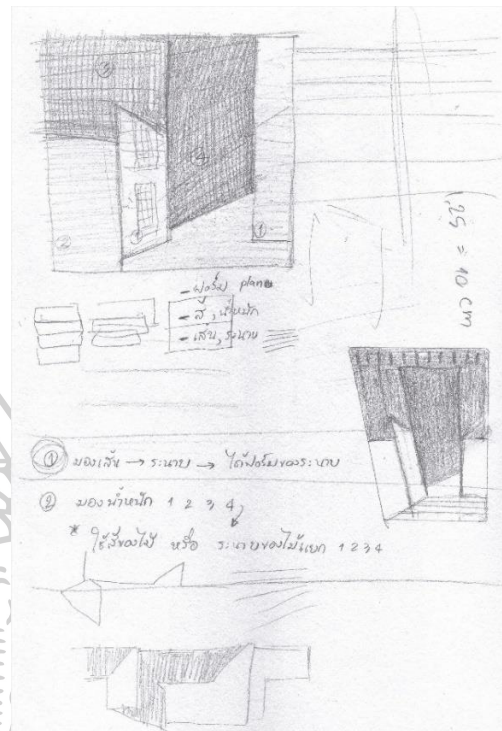 ③
④
②
①
1,25 = 10 cm
- ฟอร์ม plane
- สี, น้ำหนัก
- เส้น, ระนาบ
① มองเส้น → ระนาบ → ได้ฟอร์มของระนาบ
② มองน้ำหนัก 1 2 3 4
* ใช้สีของไม้ หรือ ระนาบของไม้แยก 1 2 3 4